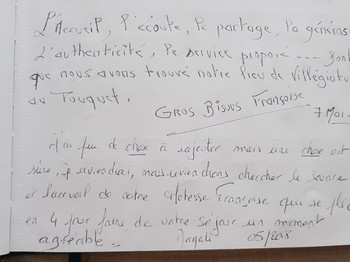 L'Accueil, l'écoute, le partage, la généros
L'authenticité, le service proposé .... Font
que nous avons trouvé notre lieu de Villégiatu
au Touquet.
GROS Bisous Françoise
7 Mai.
J'ai peu de chose à rajouter mais une chose est
sûre, je reviendrai, mais reviendrons chercher le sourire
et l'accueil de votre hôtesse Françoise qui se plie
en 4 pour faire de votre séjour un moment
agréable.
Magali 05/2018